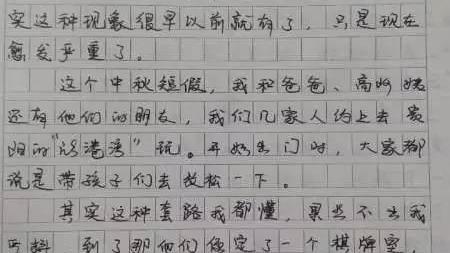 实这种现象很早以前就有了，只是现在
愈发严重了。
这个中秋短假，我和爸爸、高妈妈
还有他们的朋友，我们几家人约上去襄
阳的“港湾”玩。开始出门时，大家都
说是带孩子们去放松一下。
其实这种套路我都懂，果然不出我
所料，到了那他们便定了一个棋牌室，